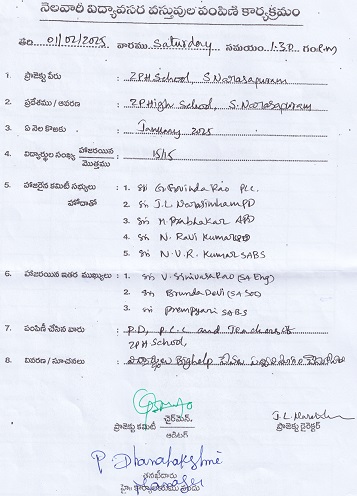 నెలవారీ విద్యావసర వస్తువుల పంపిణి కార్యక్రమం
తేది 01/02/2025 వారము Saturday సమయం 1.30 గం
1. ప్రాజెక్టు పేరు : ZPH School, S. Narasapuram
2. ప్రదేశము / ఆవరణ : ZPHigh School, S. Narasapuram
3. ఏ నెల కొఱకు : January 2025
4. విద్యార్థుల సంఖ్య హాజరయిన మొత్తము : 15/15
5. హాజరైన కమిటీ సభ్యులు హోదాతో : 1. Sri G. Govinda Rao PCC.
2. Sri J.L Narasimham PD
3. Sri M. Prabhakar APD
4. Sri N. Ravi Kumar
5. Sri N.V.R. Kumar SABS
6. హాజరయిన ఇతర ముఖ్యులు : 1. Sri V. Srinivasa Rao (SA Eng)
2. Sri Brunda Devi (SA Soc)
3. Sri prempyari SABS
7. పంపిణీ చేసిన వారు : P.D, P.C.C and Teachers
ZPH School,
8. వివరణ / సూచనలు : Bighelp
ప్రాజెక్టు కమిటీ ఛైర్మెన్.
ఆడిటర్
ప్రాజెక్టు డైరెక్టర్
P. Dhanalakshmi